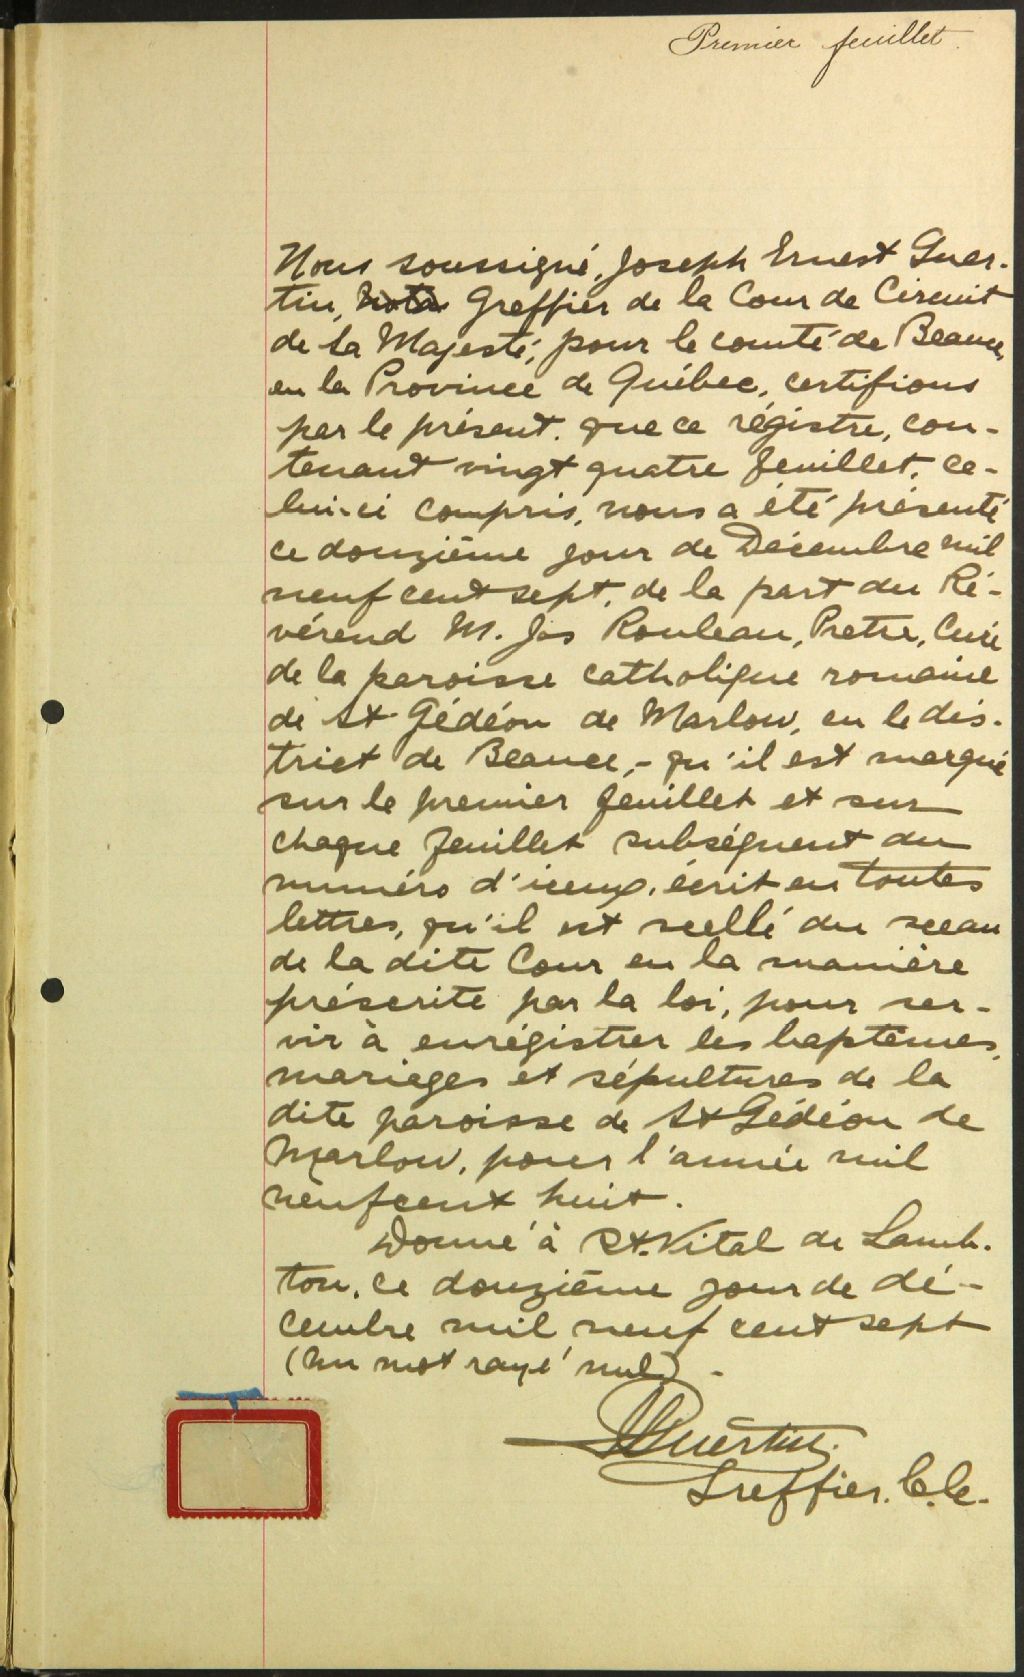 Premier feuillet.
Nous soussigné, Joseph Ernest Guer-
tin, Greffier de la Cour de Circuit
de Sa Majesté, pour le comté de Beauce,
en la Province de Québec, certifions
par le présent. que ce régistre, con-
tenant vingt quatre feuillet, ce-
lui-ci compris, nous a été présenté
ce douzième jour de Décembre mil
neuf cent sept, de la part du Ré-
vérend M. Jos Rouleau, Pretre, Curé
de la paroisse catholique romaine
de St Gédéon de Marlow, en le dis-
trict de Beauce,- qu'il est marqué
sur le premier feuillet et sur
chaque feuillet subséquent du
numéro d'iceux, écrit en toutes
lettres, qu'il est scellé du sceau
de la dite Cour en la manière
préscrite par la loi, pour ser-
vir à enrégistrer les baptêmes,
mariages et sépultures de la
dite paroisse de St Gédéon de
Marlow, pour l'année mil
neuf cent huit.
Donné à St. Vital de Lamb-
ton, ce douzième jour de dé-
cembre mil neuf cent sept
(Un mot rayé nul) -
Guertin.
Greffier. C.C.